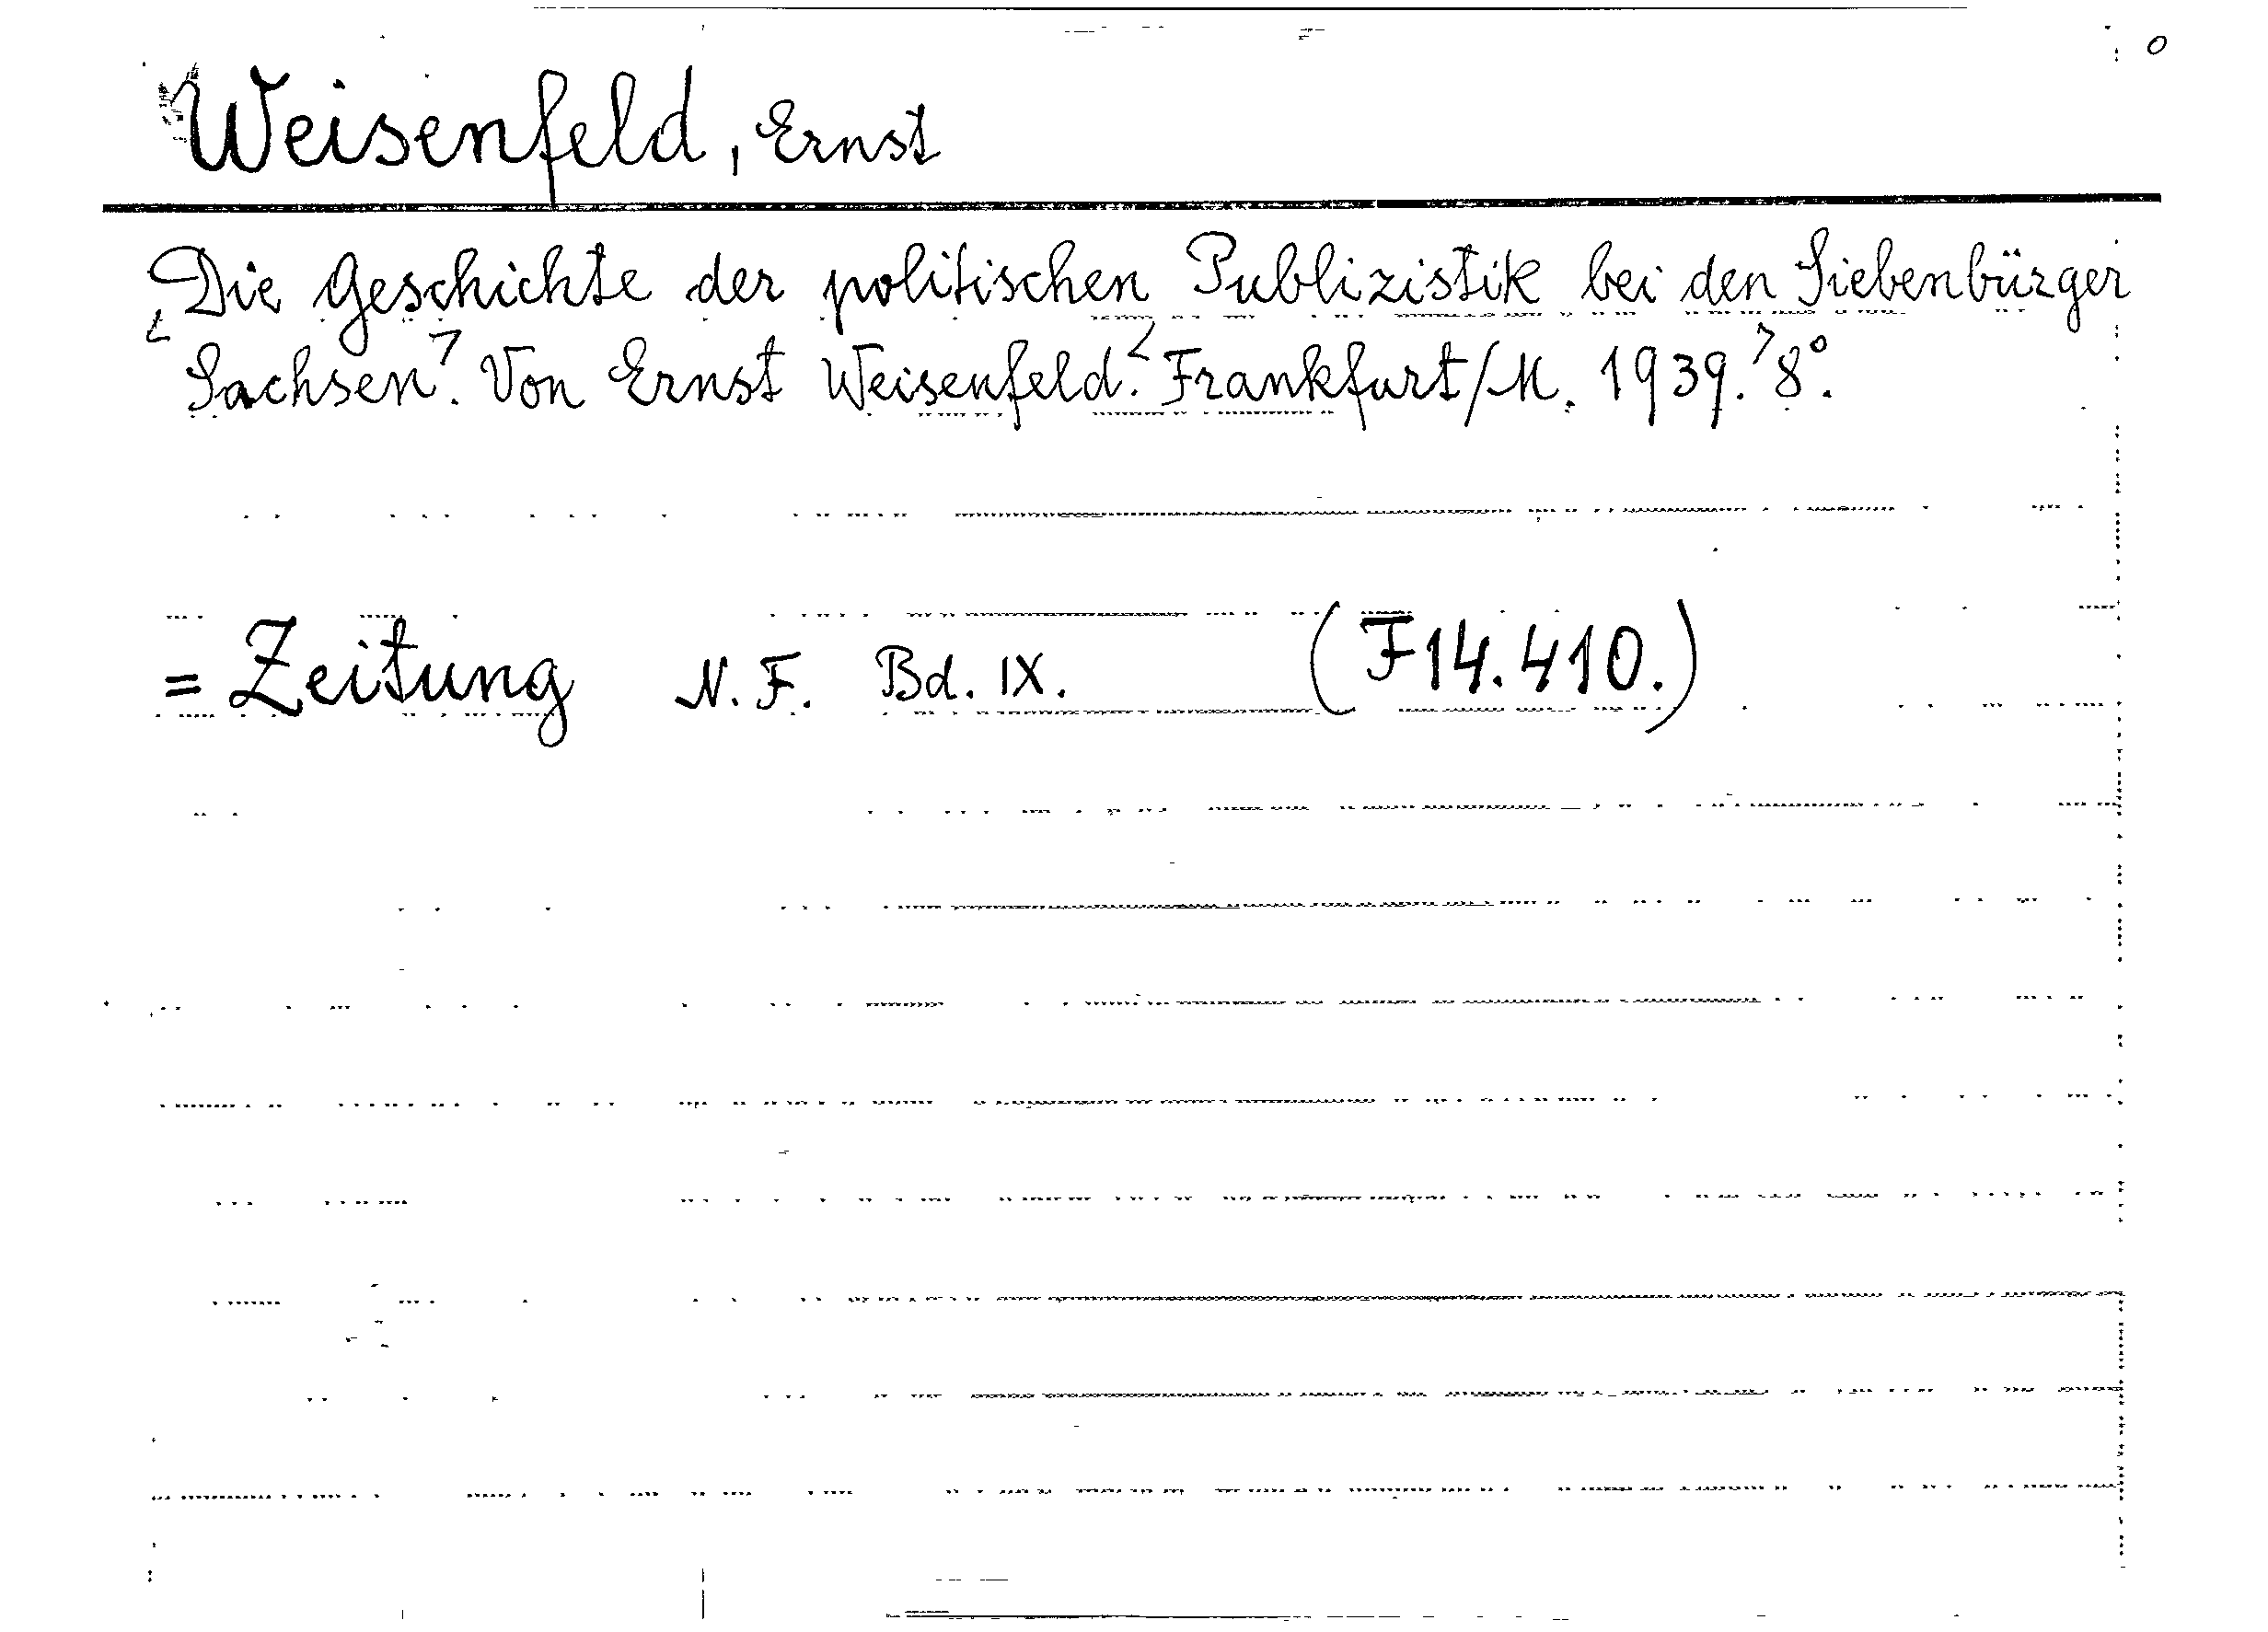 o
Weisenfeld, Ernst
Die Geschichte der politischen Publizistik bei den Siebenbürger
< Sachsen>. Von Ernst Weisenfeld. <Frankfurt/M. 1939.> 8°.
= Zeitung N. F. Bd. IX. (F 14.410.)